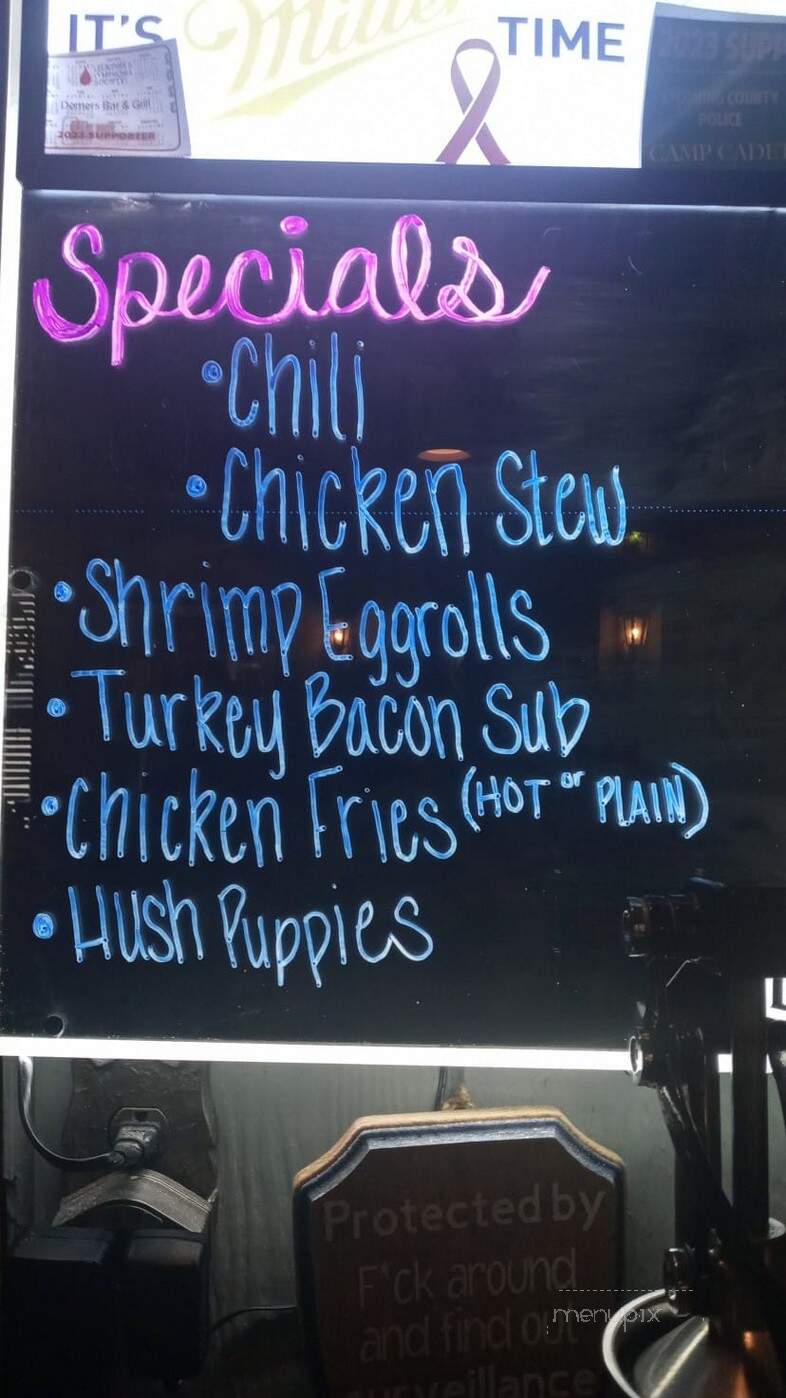 IT'S Miller TIME
LEUKEMIA & LYMPHOMA SOCIETY
Domers Bar & Grill
2023 SUPPORTER
2023 SUPP
COUNTY
POLICE
CAMP CADET
Specials
• Chili
• Chicken Stew
• Shrimp Eggrolls
• Turkey Bacon Sub
• Chicken Fries (HOT or PLAIN)
• Hush Puppies
Protected by
F*ck around
and find out
surveillance
menupix